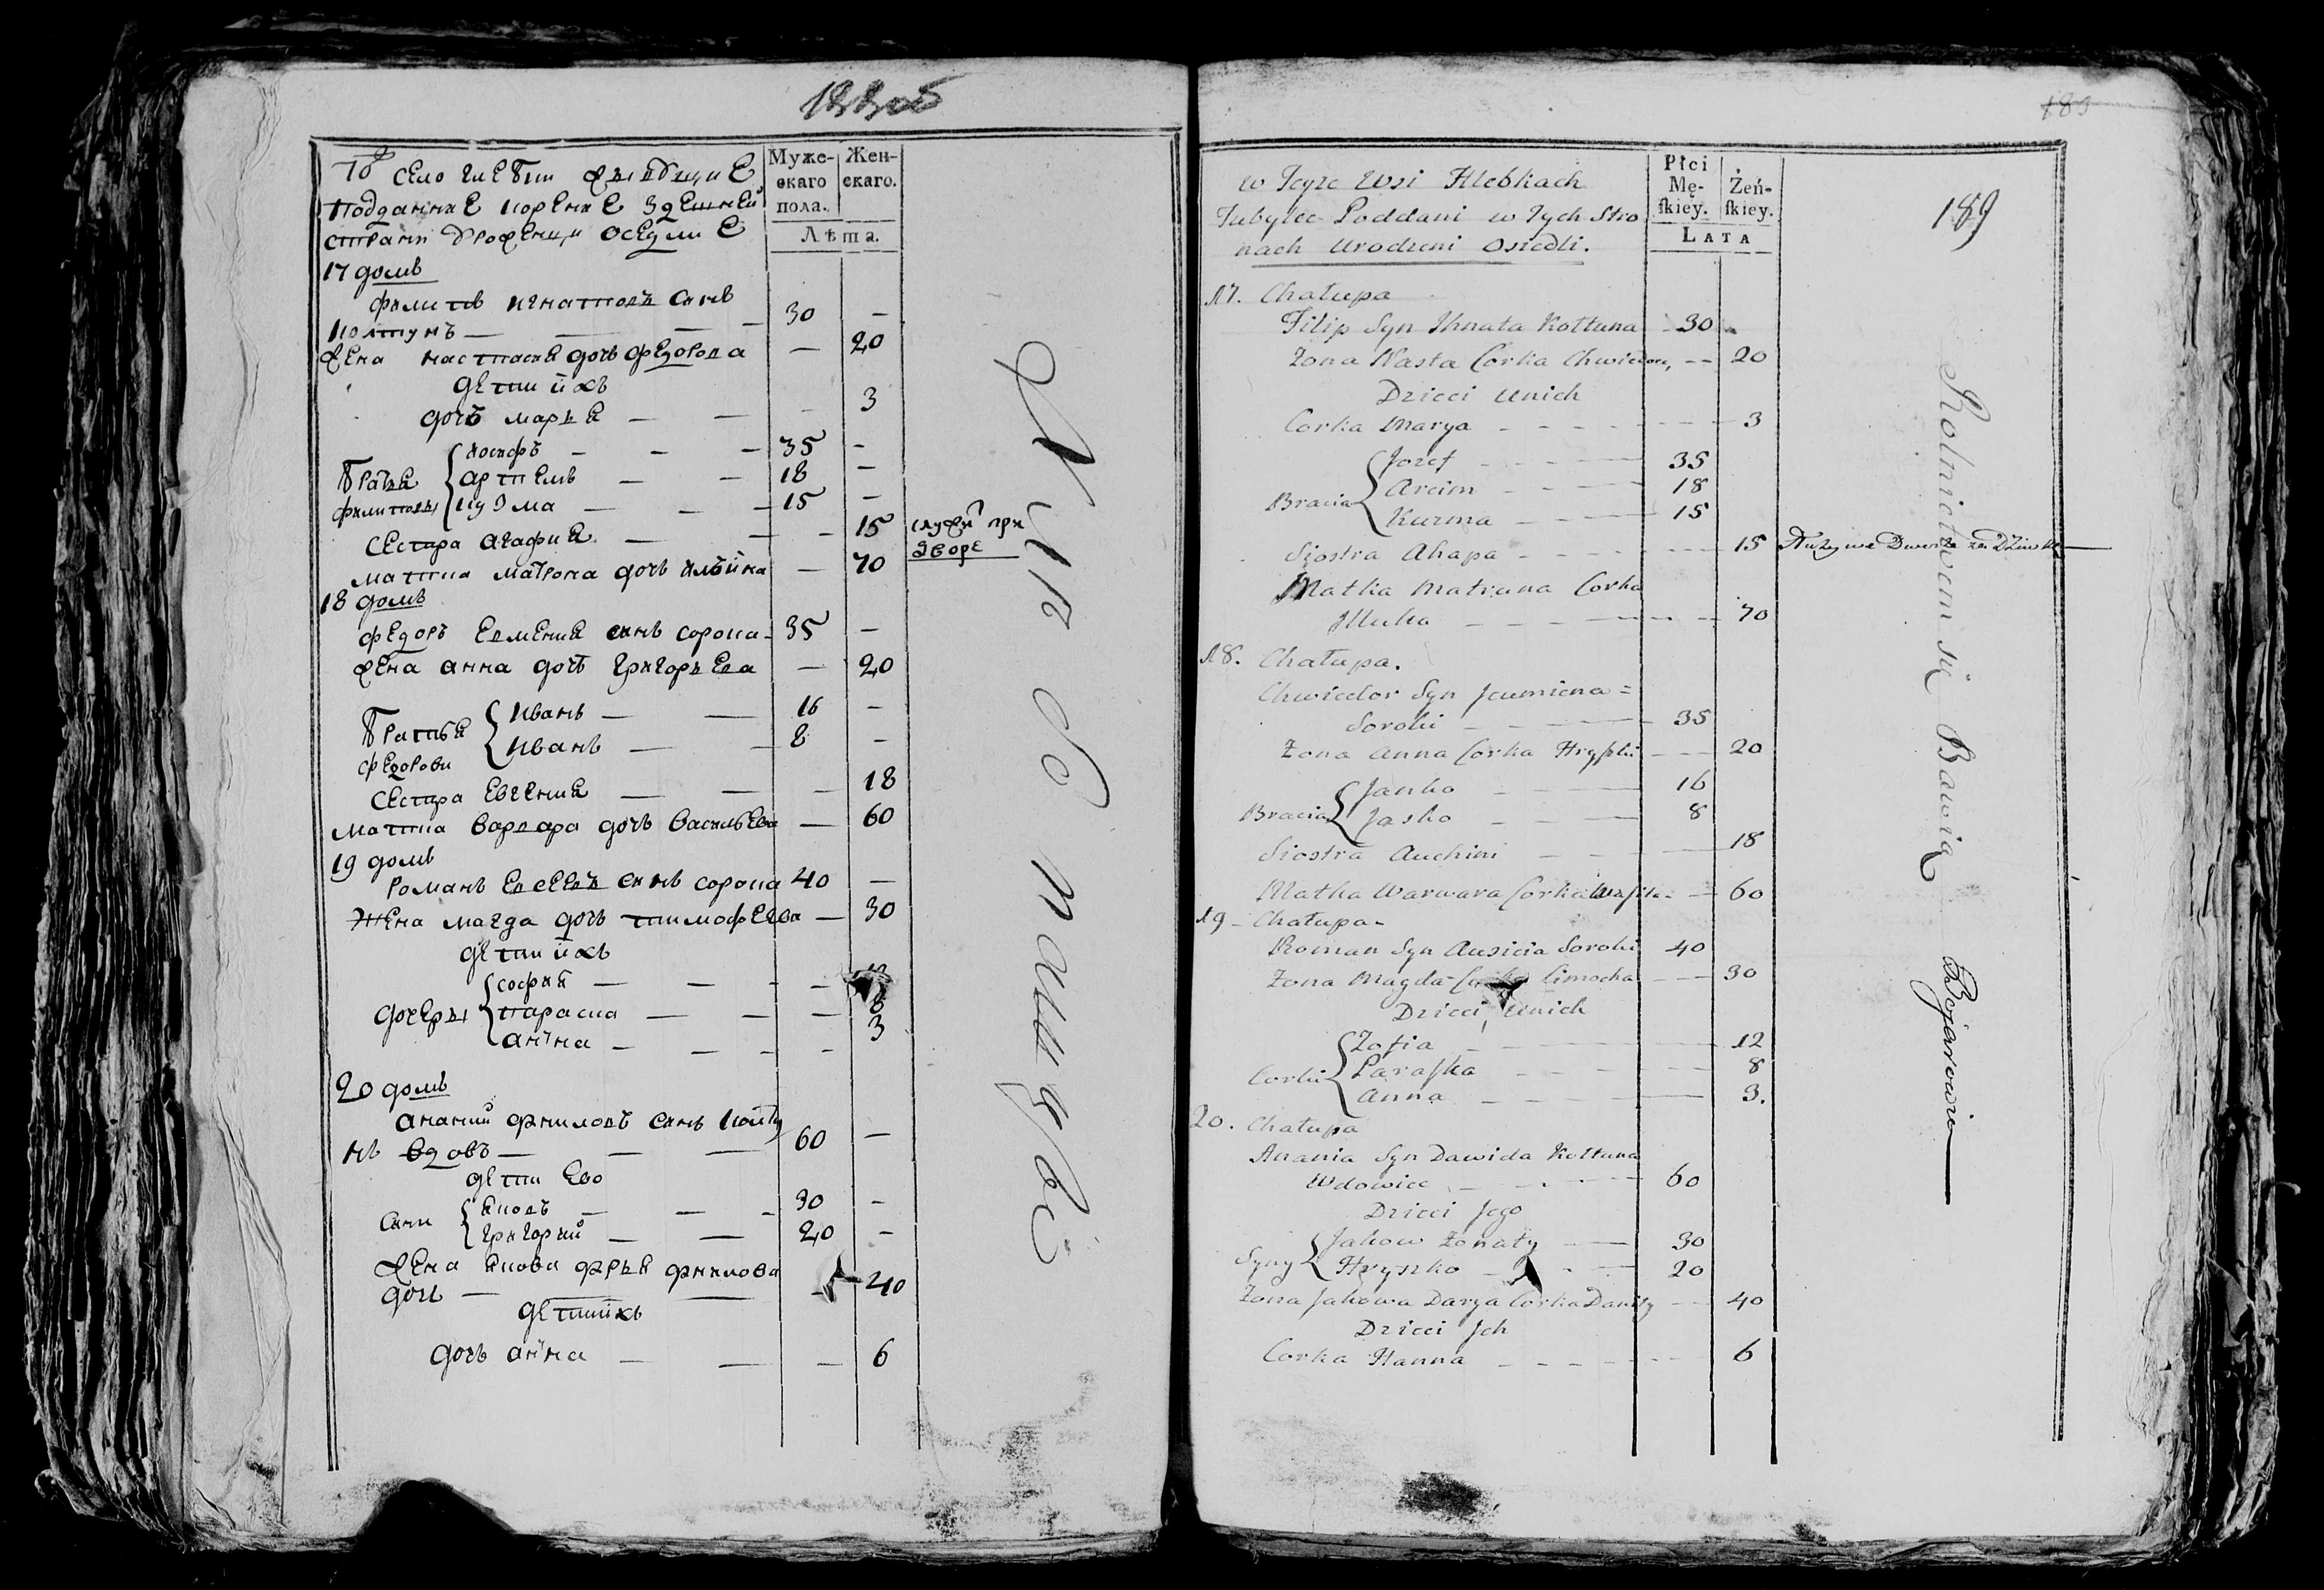 188об
село глебки
подданние корение здешней
страни урожении оседлие
Муже-
скаго
пола.
Жен-
скаго.
Лѣта.
17 домъ
филипъ игнатовъ синъ
колтунъ — — — 30 —
жена настасия дочь федорова — 20
дети ихъ
дочъ маръя — — — 3
братя
филиповы
иосифъ — — — 35 —
артемъ — — 18 —
кузма — — — 15 —
сестра агафия — — — 15
матка матрона дочь ильина — 70
18 домъ
федоръ евмения синъ сорока 35 —
жена анна дочъ григоръева — 20
братья
федорови
иванъ — — 16 —
иванъ — — 8 —
сестра евгения — — — 18
матка варвара дочъ василъева — 60
19 домъ
романъ евсеевъ синъ сорока 40 —
жена магда дочъ тимофеева — 30
дети ихъ
дочеры
софия — — — —
параска — — — 8
анна — — — — 3
20 домъ
ананий синъ колту
нъ вдовъ — — — 60 —
дети ево
сини
яковъ — — — 30 —
григорий — — 20 —
жена якова
дочъ — — — — 40
дети ихъ
дочъ анна — — — 6
служи при
дворе
189
w Teyże Wsi Hlebkach
Tubylec Poddani w Tych Stro
nach Urodzeni Osiedli.
Płci
Mę-
skiey.
Żeń-
skiey.
LATA
189
17. Chałupa
Filip Syn Ihnata Kołtuna - 30
Żona Nasta Corka -- 20
Dzieci Unich
Corka Marya - - - - 3
Bracia
Jozef - - - 35
Arcim - - - 18
Kuzma - - - 15
Siostra Ahapa - - - - 15
Matka Matruna Corka
- - - - 70
18. Chałupa.
Chwiedor Syn Jeumiena =
Soroki - - - 35
Żona Anna Corka - - - 20
Bracia
Janko - - 16
Jasko - - - 8
Siostra Auchini - - - 18
Matka Warwara Corka - - 60
19 - Chałupa -
Roman Syn Ausieia Soroki 40
Żona Magda Corka Cimocha - - 30
Dzieci Unich
Corki
Zofia - - - 12
Paraska - - - 8
Anna - - - 3.
20. Chałupa
Anania Syn Dawida Kołtuna
Wdowiec - - - 60
Dzieci Jego
Syny
Jakow Żonaty — 30
Hryszko - - - 20
Żona Jakowa Darya Corka - - 40
Dzieci Jch
Corka Hanna - - - - 6
Rolnictwem się Bawią Bojarowie